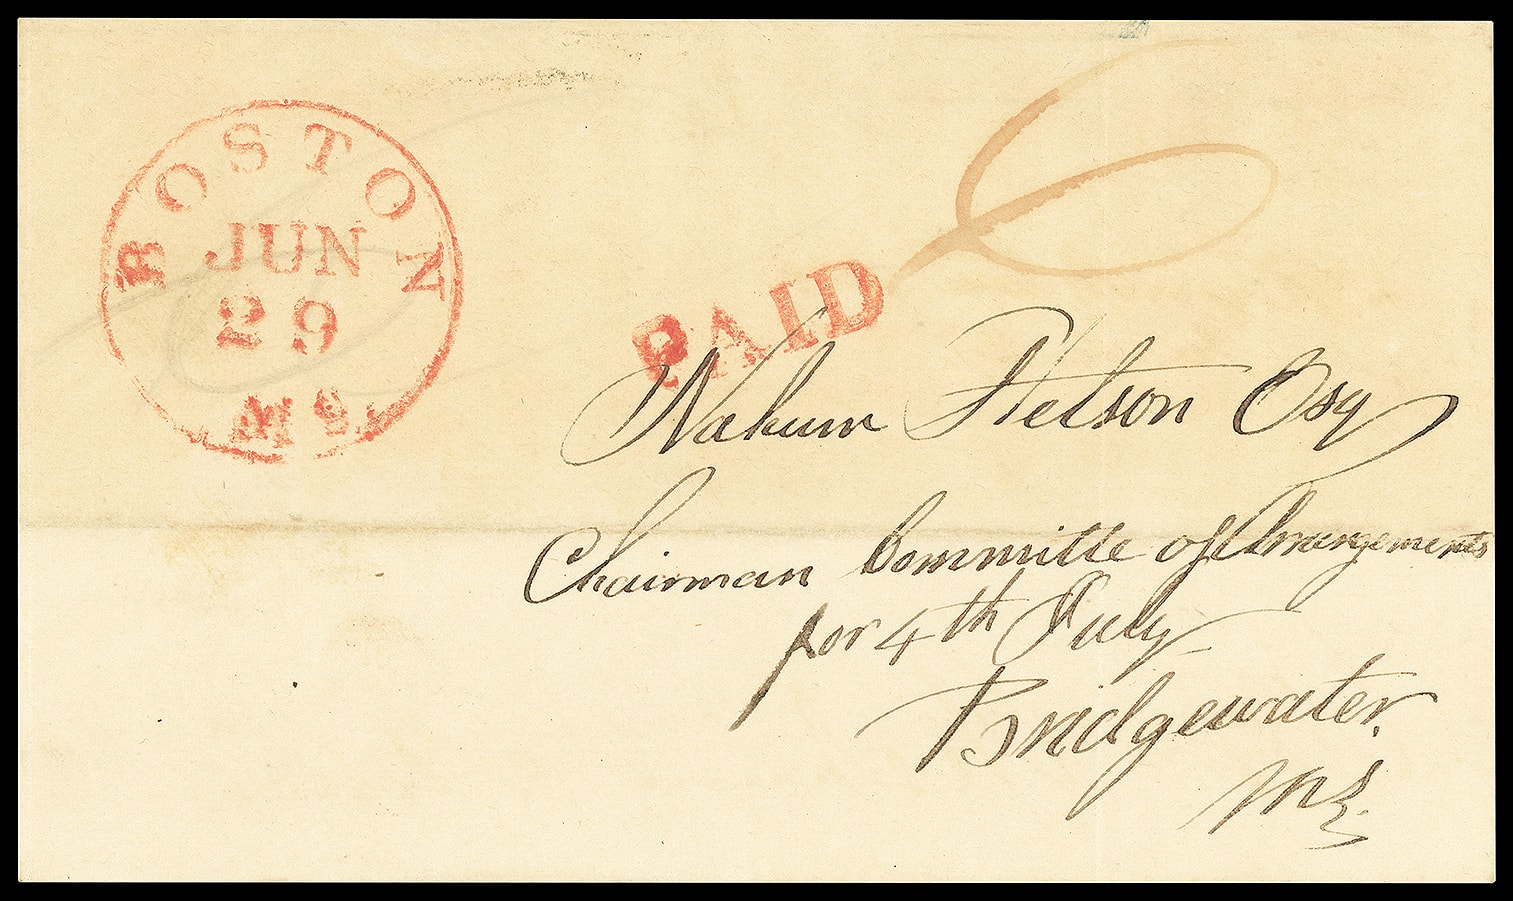 BOSTON
JUN
29
MS.
PAID
6
Nahum Stetson Esq
Chairman Committe of Arrangements
for 4th July
Bridgewater.
Ms.